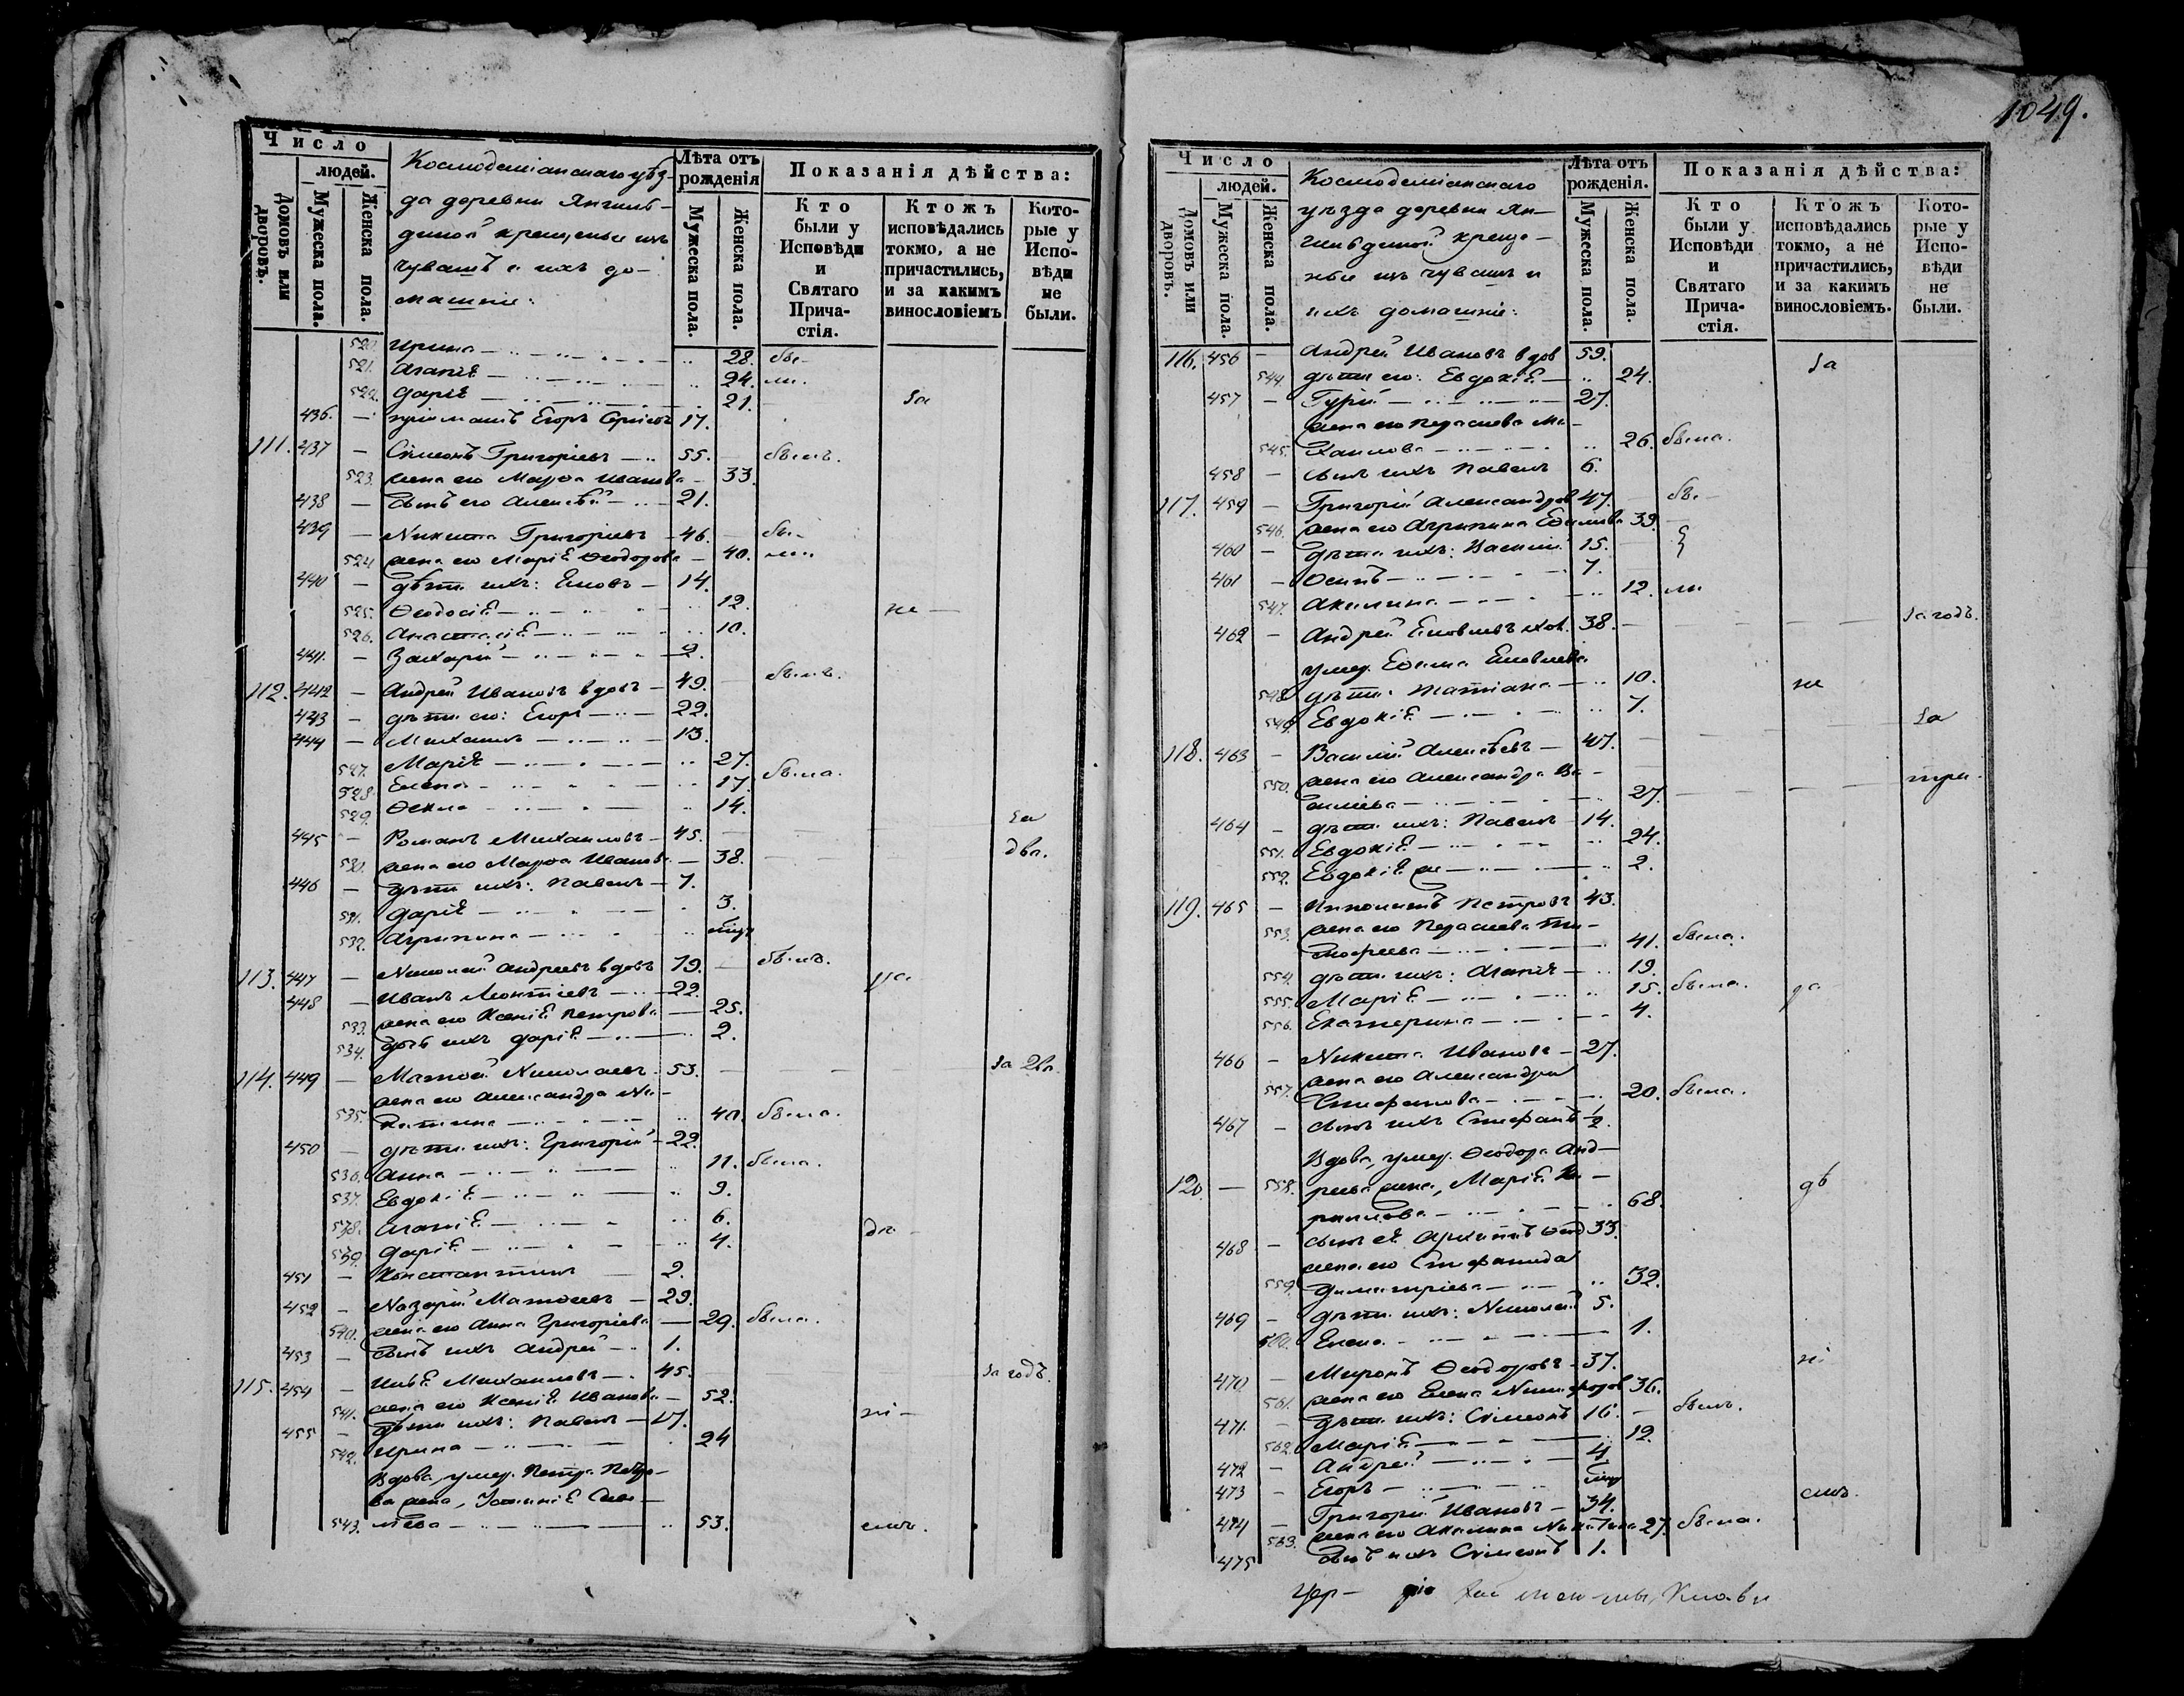 1049.
Число
людей.
Домовъ или дворовъ.
Мужеска пола.
Женска пола.
Космодеміанскаго уѣз-
да деревни
крещеные изъ
чувашъ и ихъ до-
машніе:
Лѣта отъ
рожденія
Мужеска пола.
Женска пола.
Показанія дѣйства:
Кто
были у
Исповѣди
и
Святаго
Прича-
стія.
Ктожъ
исповѣдались
токмо, а не
причастились,
и за какимъ
винословіемъ
Кото-
рые у
Испо-
вѣди
не
были.
520. Ирина 28. бы-
521. Агапія 24. ли.
522. Дарія 21. за
436. — пріимашъ Егоръ 17.
111. 437 — Сѵмеонъ Григоріевъ 55. былъ.
523. жена его Марѳа Иванова 33.
438 — сынъ его Алексѣй 21.
439 — Никита Григоріевъ 46. бы-
524 жена его Марія Ѳеодорова 40. ли
440 — дѣти ихъ: Іаковъ 14.
525. Ѳеодосія 12. не
526. Анастасія 10.
441. — Захарій 2.
112. 442 — Андрей Ивановъ вдов 49. былъ.
443 — дѣти его: Егоръ 22.
444 — Михаилъ 13.
527. Марія 27.
528. Елена 17. была.
529. Ѳекла 14.
445 — Романъ Михаиловъ 45. за
530. жена его Марѳа Иванова 38. два.
446 — дѣти ихъ: Павелъ 7.
531. Дарія 3.
532. Агрипина
113. 447 — Николай Андреевъ вдовъ 79. былъ.
448 — Иванъ Леонтіевъ 22.
533. жена его Ксенія Петрова 25.
534. дочь ихъ Дарія 2.
114. 449 — Матѳей Николаевъ 53. за два.
жена его Александра Ни-
535. китина 40. была.
450 — дѣти ихъ: Григорій 22.
536. Анна 11. была.
537. Евдокія 9.
538. Агапія 6.
539. Дарія 4.
451 — Константинъ 2.
452 — Назарій Матѳеевъ 29.
540. жена его Анна Григоріева 29. была.
453 — сынъ ихъ Андрей 1.
115. 454 — Илья Михаиловъ 45. за годъ.
541. жена его Ксенія Иванова 52.
455 — дѣти ихъ: Павелъ 17.
542. Ирина 24
Вдова, умер. Петра Петро-
ва жена,
543. 53.
Число
людей.
Домовъ или дворовъ.
Мужеска пола.
Женска пола.
Космодеміанскаго
уѣзда деревни
креще-
ные изъ чувашъ и
ихъ домашніе:
Лѣта отъ
рожденія.
Мужеска пола.
Женска пола.
Показанія дѣйства:
Кто
были у
Исповѣди
и
Святаго
Прича-
стія.
Ктожъ
исповѣдались
токмо, а не
причастились,
и за какимъ
винословіемъ.
Кото-
рые у
Испо-
вѣди
не
были.
116. 456 — Андрей Ивановъ вдов 59. за
544. дѣти его: Евдокія 24.
457 — Гурій 27.
жена его Пелагея Ми-
545. хаилова 26. была.
458 — сынъ ихъ Павелъ 6.
117. 459 — Григорій Александров 47. бы-
546. жена его Агрипина 39.
460 — дѣти ихъ: Василій 15.
461 — Осипъ 7.
547. Акилина 12. ли
462 — Андрей Яковлевъ 38. за годъ.
умер. Яковлева
548. дѣти: Татіана 10. не
549. Евдокія 7. за
118. 463 — Василій Алексѣевъ 47.
550. жена его Александра Ва-
силіева 27. три.
464 — дѣти ихъ: Павелъ 14.
551. Евдокія 24.
552. Евдокія 2.
119. 465 — Петровъ 43.
553. жена его Пелагея Ти-
моѳеева 41. была.
554. дѣти ихъ: Агапія 19.
555. Марія 15. была.
556. Екатерина 4.
466 — Никита Ивановъ 27.
557. жена его Александра
Стефанова 20. была.
467 — сынъ ихъ Стефанъ ½.
Вдова, умер. Ѳеодора Анд-
120. — 558. реева жена, Марія Ки-
риллова 68.
468 — сынъ ея Ѳеод 33.
жена его Стефанида
559. Димитріева 32.
469 — дѣти ихъ: Николай 5.
560. Елена 1.
470 — Миронъ Ѳеодоровъ 37. ні
561. жена его Елена Никифоров 36.
471. — дѣти ихъ: Сѵмеонъ 16. былъ.
562. Марія 12.
472 — Андрей 4.
473 — Егоръ
474 — Григорій Ивановъ 34.
563. жена его Акилина Никитина 27. была.
475 сынъ ихъ Сѵмеонъ 1.